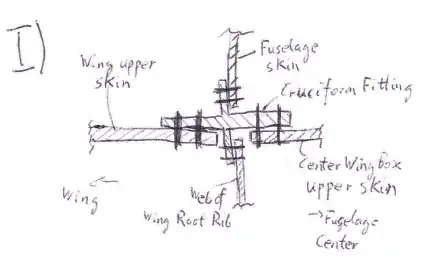 I)
Fuselage
skin
Wing upper
skin
Cruciform Fitting
Center Wing box
upper skin
→ Fuselage
Center
Wing ←
Web of
Wing Root Rib